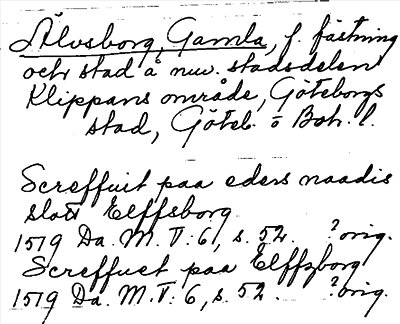 Älvsborg, Gamla, f. fästning
och stad å nuv. stadsdelen
Klippans område, Göteborgs
stad, Göteb. o Boh. l.
Screffuit paa eders naadis
slott Elffsborg
1519 Da. M. T: 6, s. 52. ? orig.
Screffuet paa Elffzborg
1519 Da. M. T: 6, s. 52. ? orig.